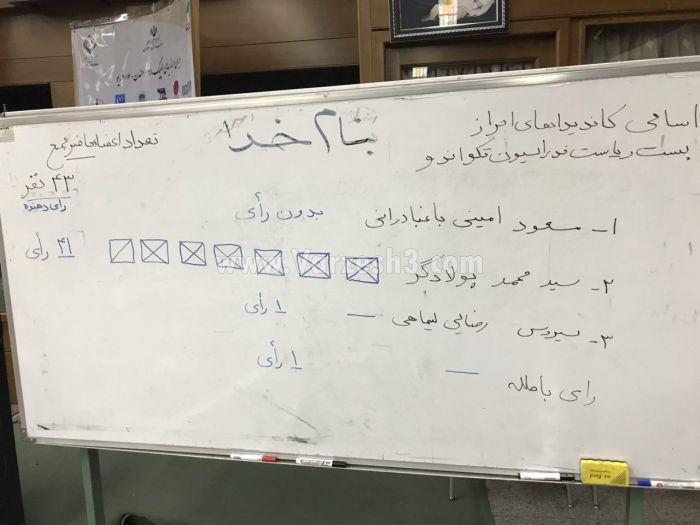 بنام خدا
اسامی کاندیداهای احراز
پست ریاست فدراسیون تکواندو
تعداد اعضاء حاضر مجمع
۴۳ نفر
رأی دهنده
۱- مسعود امینی باغبادرانی بدون رأی
۲- سید محمد پولادگر ۴۱ رأی
www.Varzesh3.com
۳- سیروس رضایی لیماهی — ۱ رأی
رای باطله — ۱ رأی